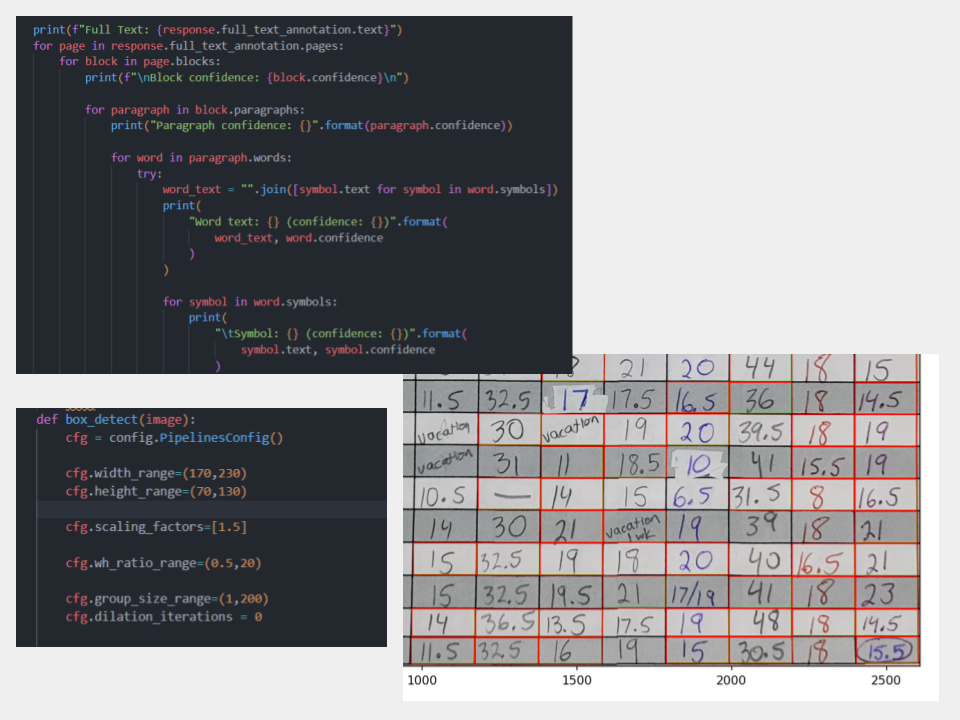 print(f"Full Text: {response.full_text_annotation.text}")
for page in response.full_text_annotation.pages:
    for block in page.blocks:
        print(f"\nBlock confidence: {block.confidence}\n")
        for paragraph in block.paragraphs:
            print("Paragraph confidence: {}".format(paragraph.confidence))
            for word in paragraph.words:
                try:
                    word_text = "".join([symbol.text for symbol in word.symbols])
                    print(
                        "Word text: {} (confidence: {})".format(
                            word_text, word.confidence
                        )
                    )
                    for symbol in word.symbols:
                        print(
                            "\tSymbol: {} (confidence: {})".format(
                                symbol.text, symbol.confidence
                            )
def box_detect(image):
    cfg = config.PipelinesConfig()
    cfg.width_range=(170,230)
    cfg.height_range=(70,130)
    cfg.scaling_factors=[1.5]
    cfg.wh_ratio_range=(0.5,20)
    cfg.group_size_range=(1,200)
    cfg.dilation_iterations = 0
21 20 44 18 15
11.5 32.5 17 17.5 16.5 36 18 14.5
vacation 30 vacation 19 20 39.5 18 19
vacation 31 11 18.5 10 41 15.5 19
10.5 — 14 15 6.5 31.5 8 16.5
14 30 21 vacation 1 wk 19 39 18 21
15 32.5 19 18 20 40 16.5 21
15 32.5 19.5 21 17/19 41 18 23
14 36.5 13.5 17.5 19 48 18 14.5
11.5 32.5 16 19 15 30.5 18 15.5
1000 1500 2000 2500